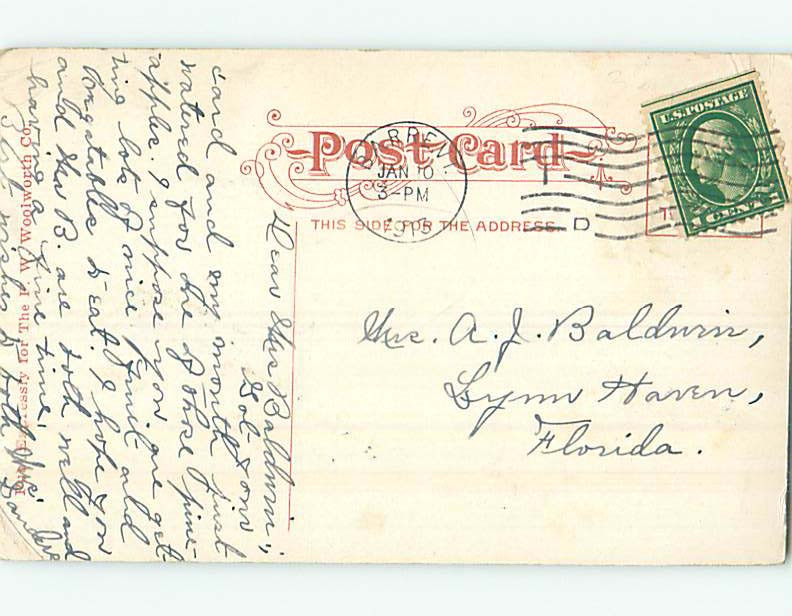 Post Card
THIS SIDE FOR THE ADDRESS.
U.S. POSTAGE
1 CENT
BARRE VT.
JAN 10
3-PM
1913
D
Mrs. A. J. Baldwin,
Lynn Haven,
Florida.
Dear Mrs Baldwin,;
Got your
card and my mouth just
watered for one of those pine
apples. I suppose you are get-
ting lots of nice fruit and
vegetables to eat. I hope you
and Mr B. are both well and
having a fine time.
Best wishes to both Mrs.
Expressly for The F. W. Woolworth Co.